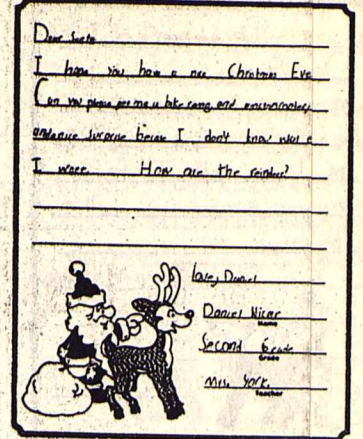 Dear Santa
I hope you have a nice Christmas Eve
Can you please get me a bike and
surprise because I don't know what
I want. How are the reindeer?
Love, Daniel
Daniel
Name
Second Grade
Grade
Mrs. York
Teacher